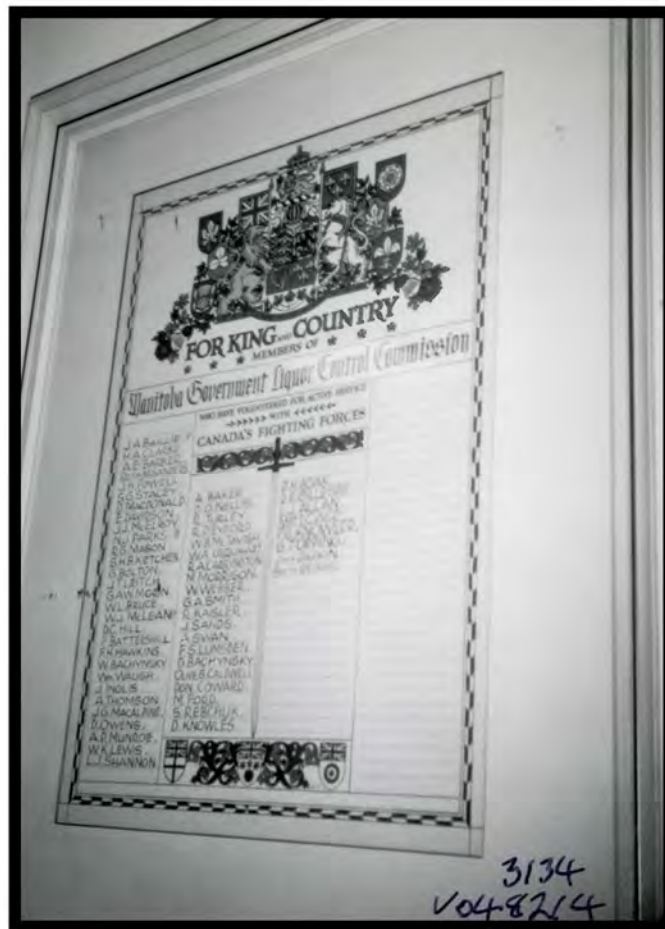 FOR KING AND COUNTRY
MEMBERS OF
Manitoba Government Liquor Control Commission
WHO HAVE VOLUNTEERED FOR ACTIVE SERVICE
WITH
CANADA'S FIGHTING FORCES
J.A. BAILLIE
H.A. CLARKE
A.E. BARKER
J.H. POWELL
G.G. STACEY
D. MACDONALD
E. DAVIDSON
J.J. McELROY
N.J. PARKS
R.G. MASON
G.H.B. KETCHEN
G. BOLTON
J.T. LEITCH
G.A.W. MOON
W.L. BRUCE
W.J. McLEAN
D.C. HILL
F. BATTERSHILL
F.H. HAWKINS
W. BACHYNSKY
WM. WAUGH
J. INGLIS
A. THOMSON
J.G. MACALPINE
D. OWENS
A.D. MUNROE
W.K. LEWIS
L.J. SHANNON
A. BAKER
D.O. NELLIS
E. TURLEY
W.B. McTAVISH
W.A. URQUHART
R.A. CARRINGTON
N. MORRISON
W. WEBBER
G.A. SMITH
R. KAISLER
J. SANDS
A. SWAN
F.S. LUMSDEN
D. BACHYNSKY
CLIVE B. CALDWELL
DON. COWARD
M. FORD
S. REBCHUK
D. KNOWLES
ALLAN
3134
V048214